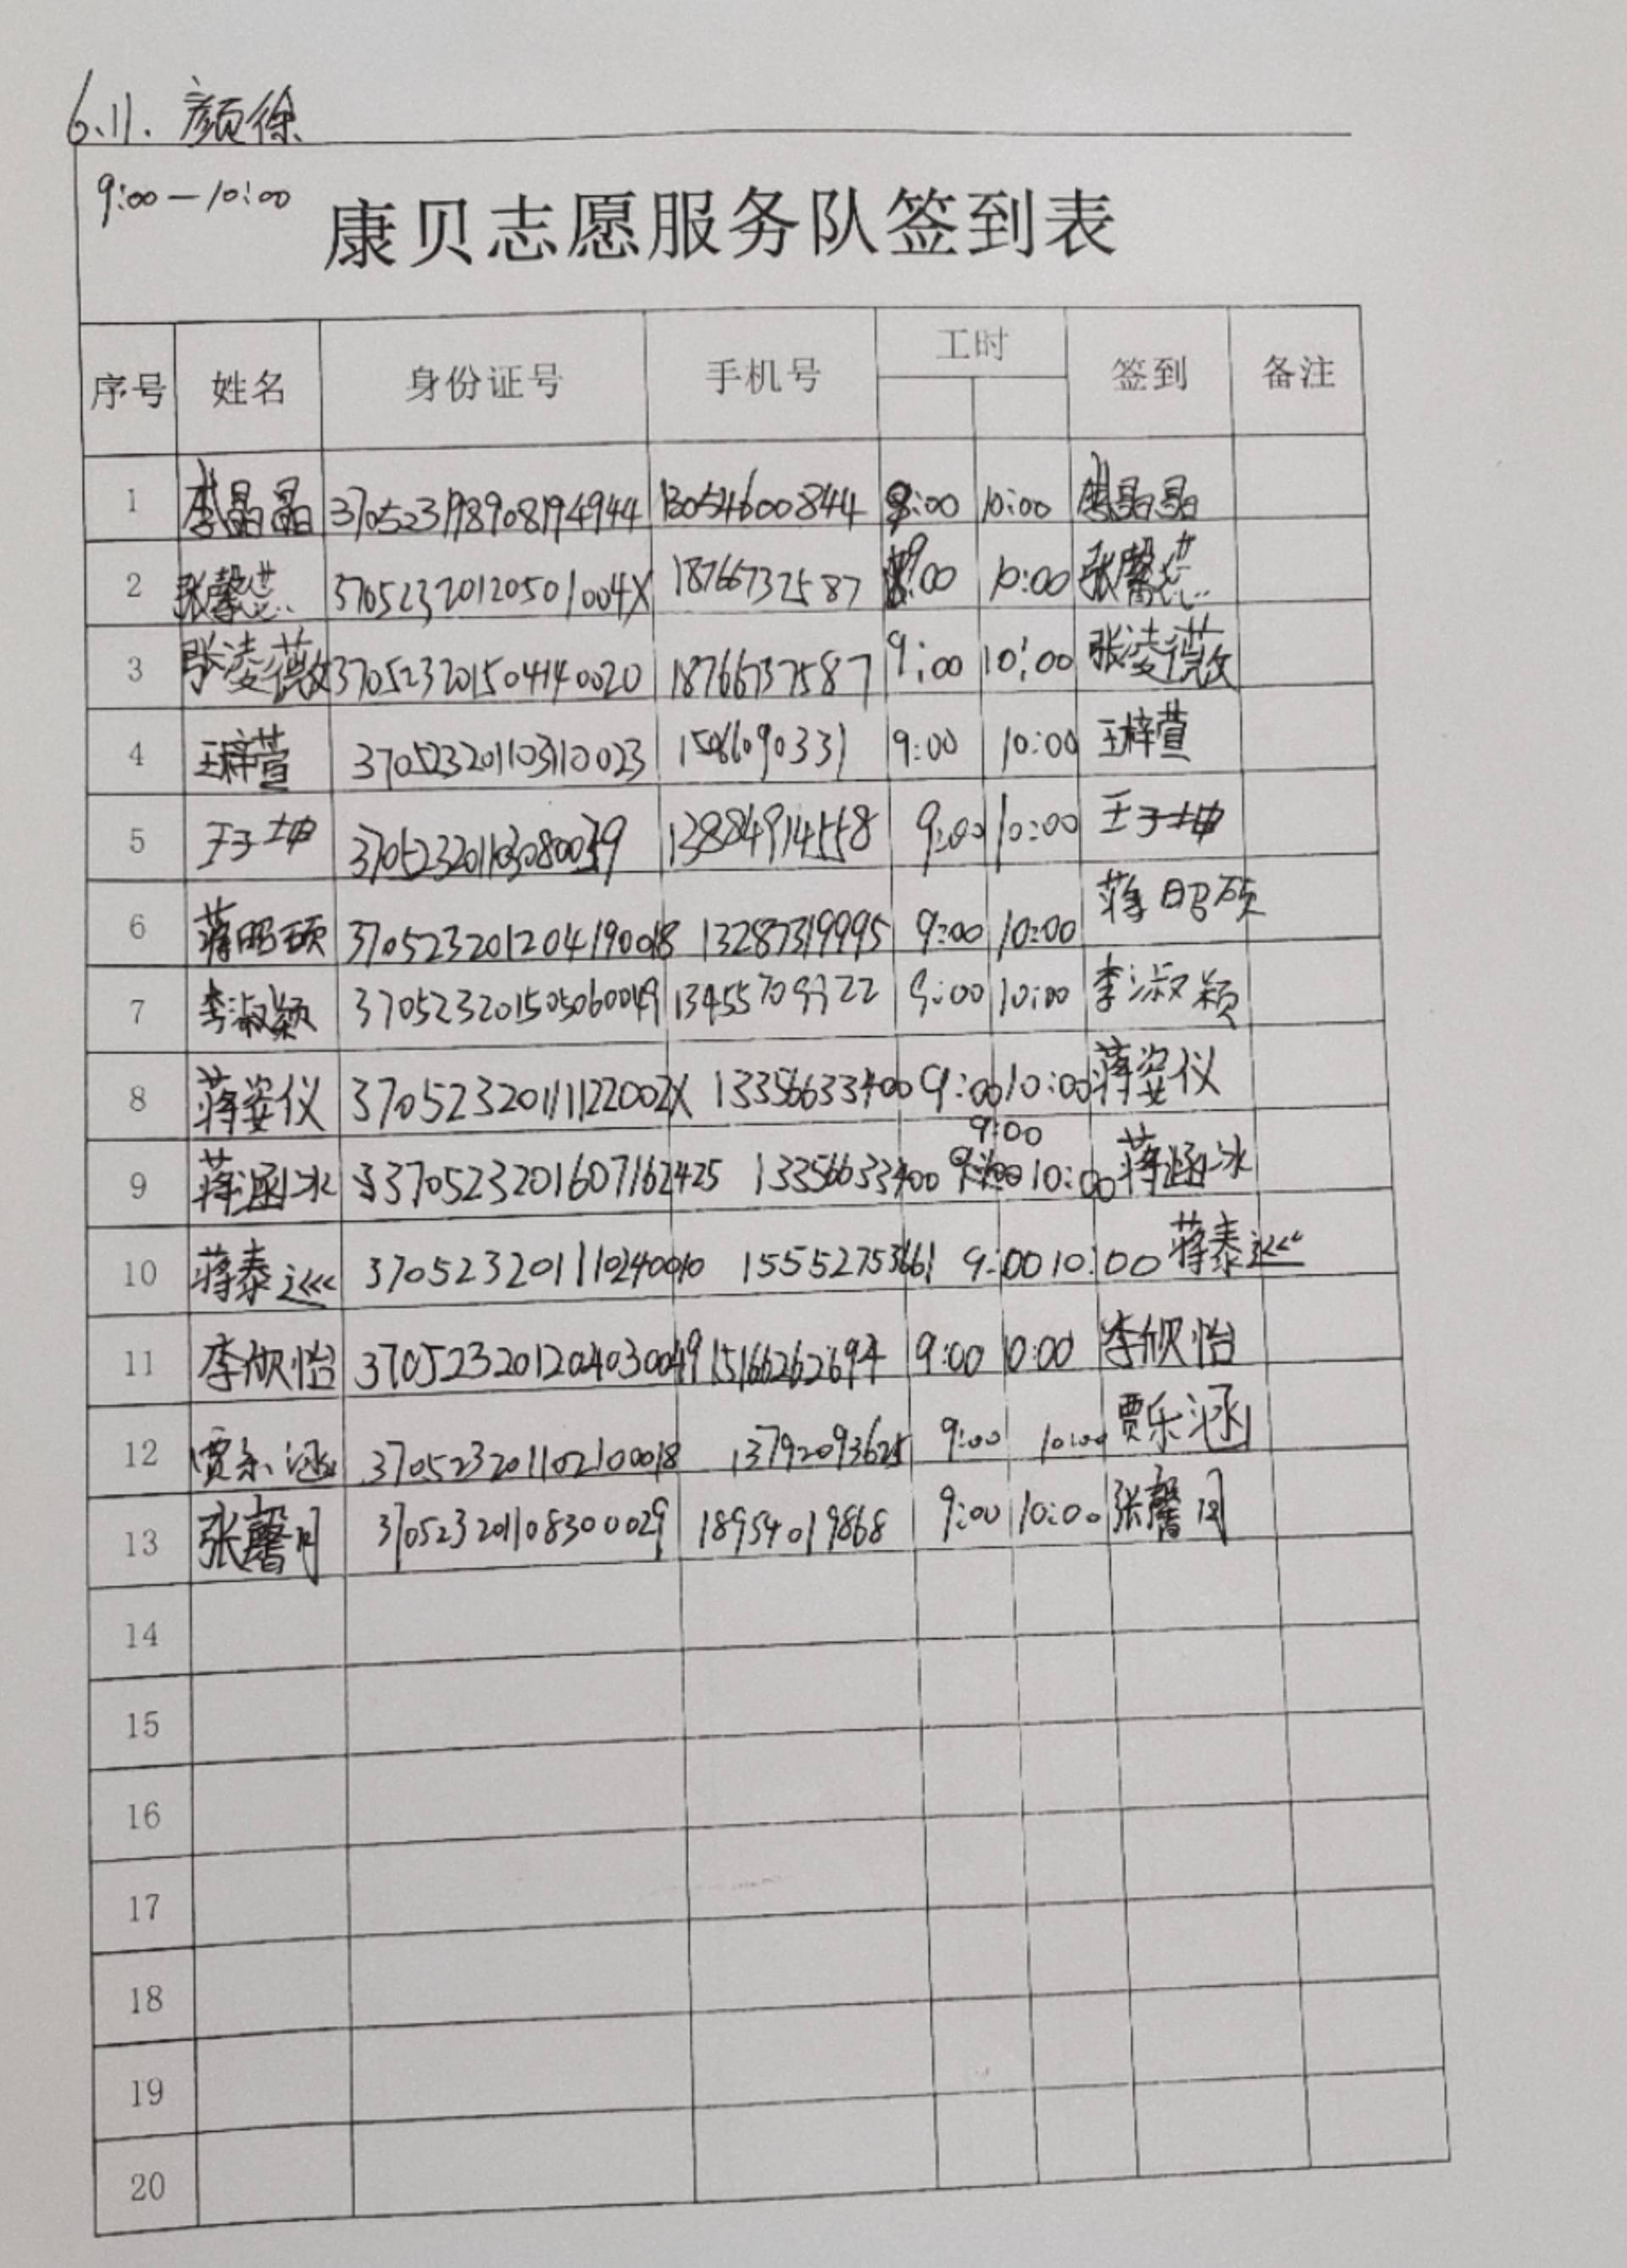 6.11. 颜徐
9:00—10:00
康贝志愿服务队签到表
序号 姓名 身份证号 手机号 工时 签到 备注
1 李晶晶 370523198908194944 13054600844 9:00 10:00 李晶晶
2 张馨芸 37052320120501004X 18766732587 9:00 10:00 张馨芸
3 张凌薇 370523201504140020 18766737587 9:00 10:00 张凌薇
4 王梓萱 370523201103110023 1586090331 9:00 10:00 王梓萱
5 王子坤 370523201103080039 13884914558 9:00 10:00 王子坤
6 蒋昭硕 370523201204190018 13287319995 9:00 10:00 蒋昭硕
7 李淑颖 370523201505060049 13455709922 9:00 10:00 李淑颖
8 蒋姿仪 37052320111122002X 13356633400 9:00 10:00 蒋姿仪
9 蒋涵冰 370523201607162425 13356633400 9:00 10:00 蒋涵冰
10 蒋泰巡 370523201110240010 15552753661 9:00 10:00 蒋泰巡
11 李欣怡 370523201204030049 15166262694 9:00 10:00 李欣怡
12 贾乐涵 370523201102100018 13792093625 9:00 10:00 贾乐涵
13 张馨月 370523201108300029 18954019868 9:00 10:00 张馨月
14
15
16
17
18
19
20